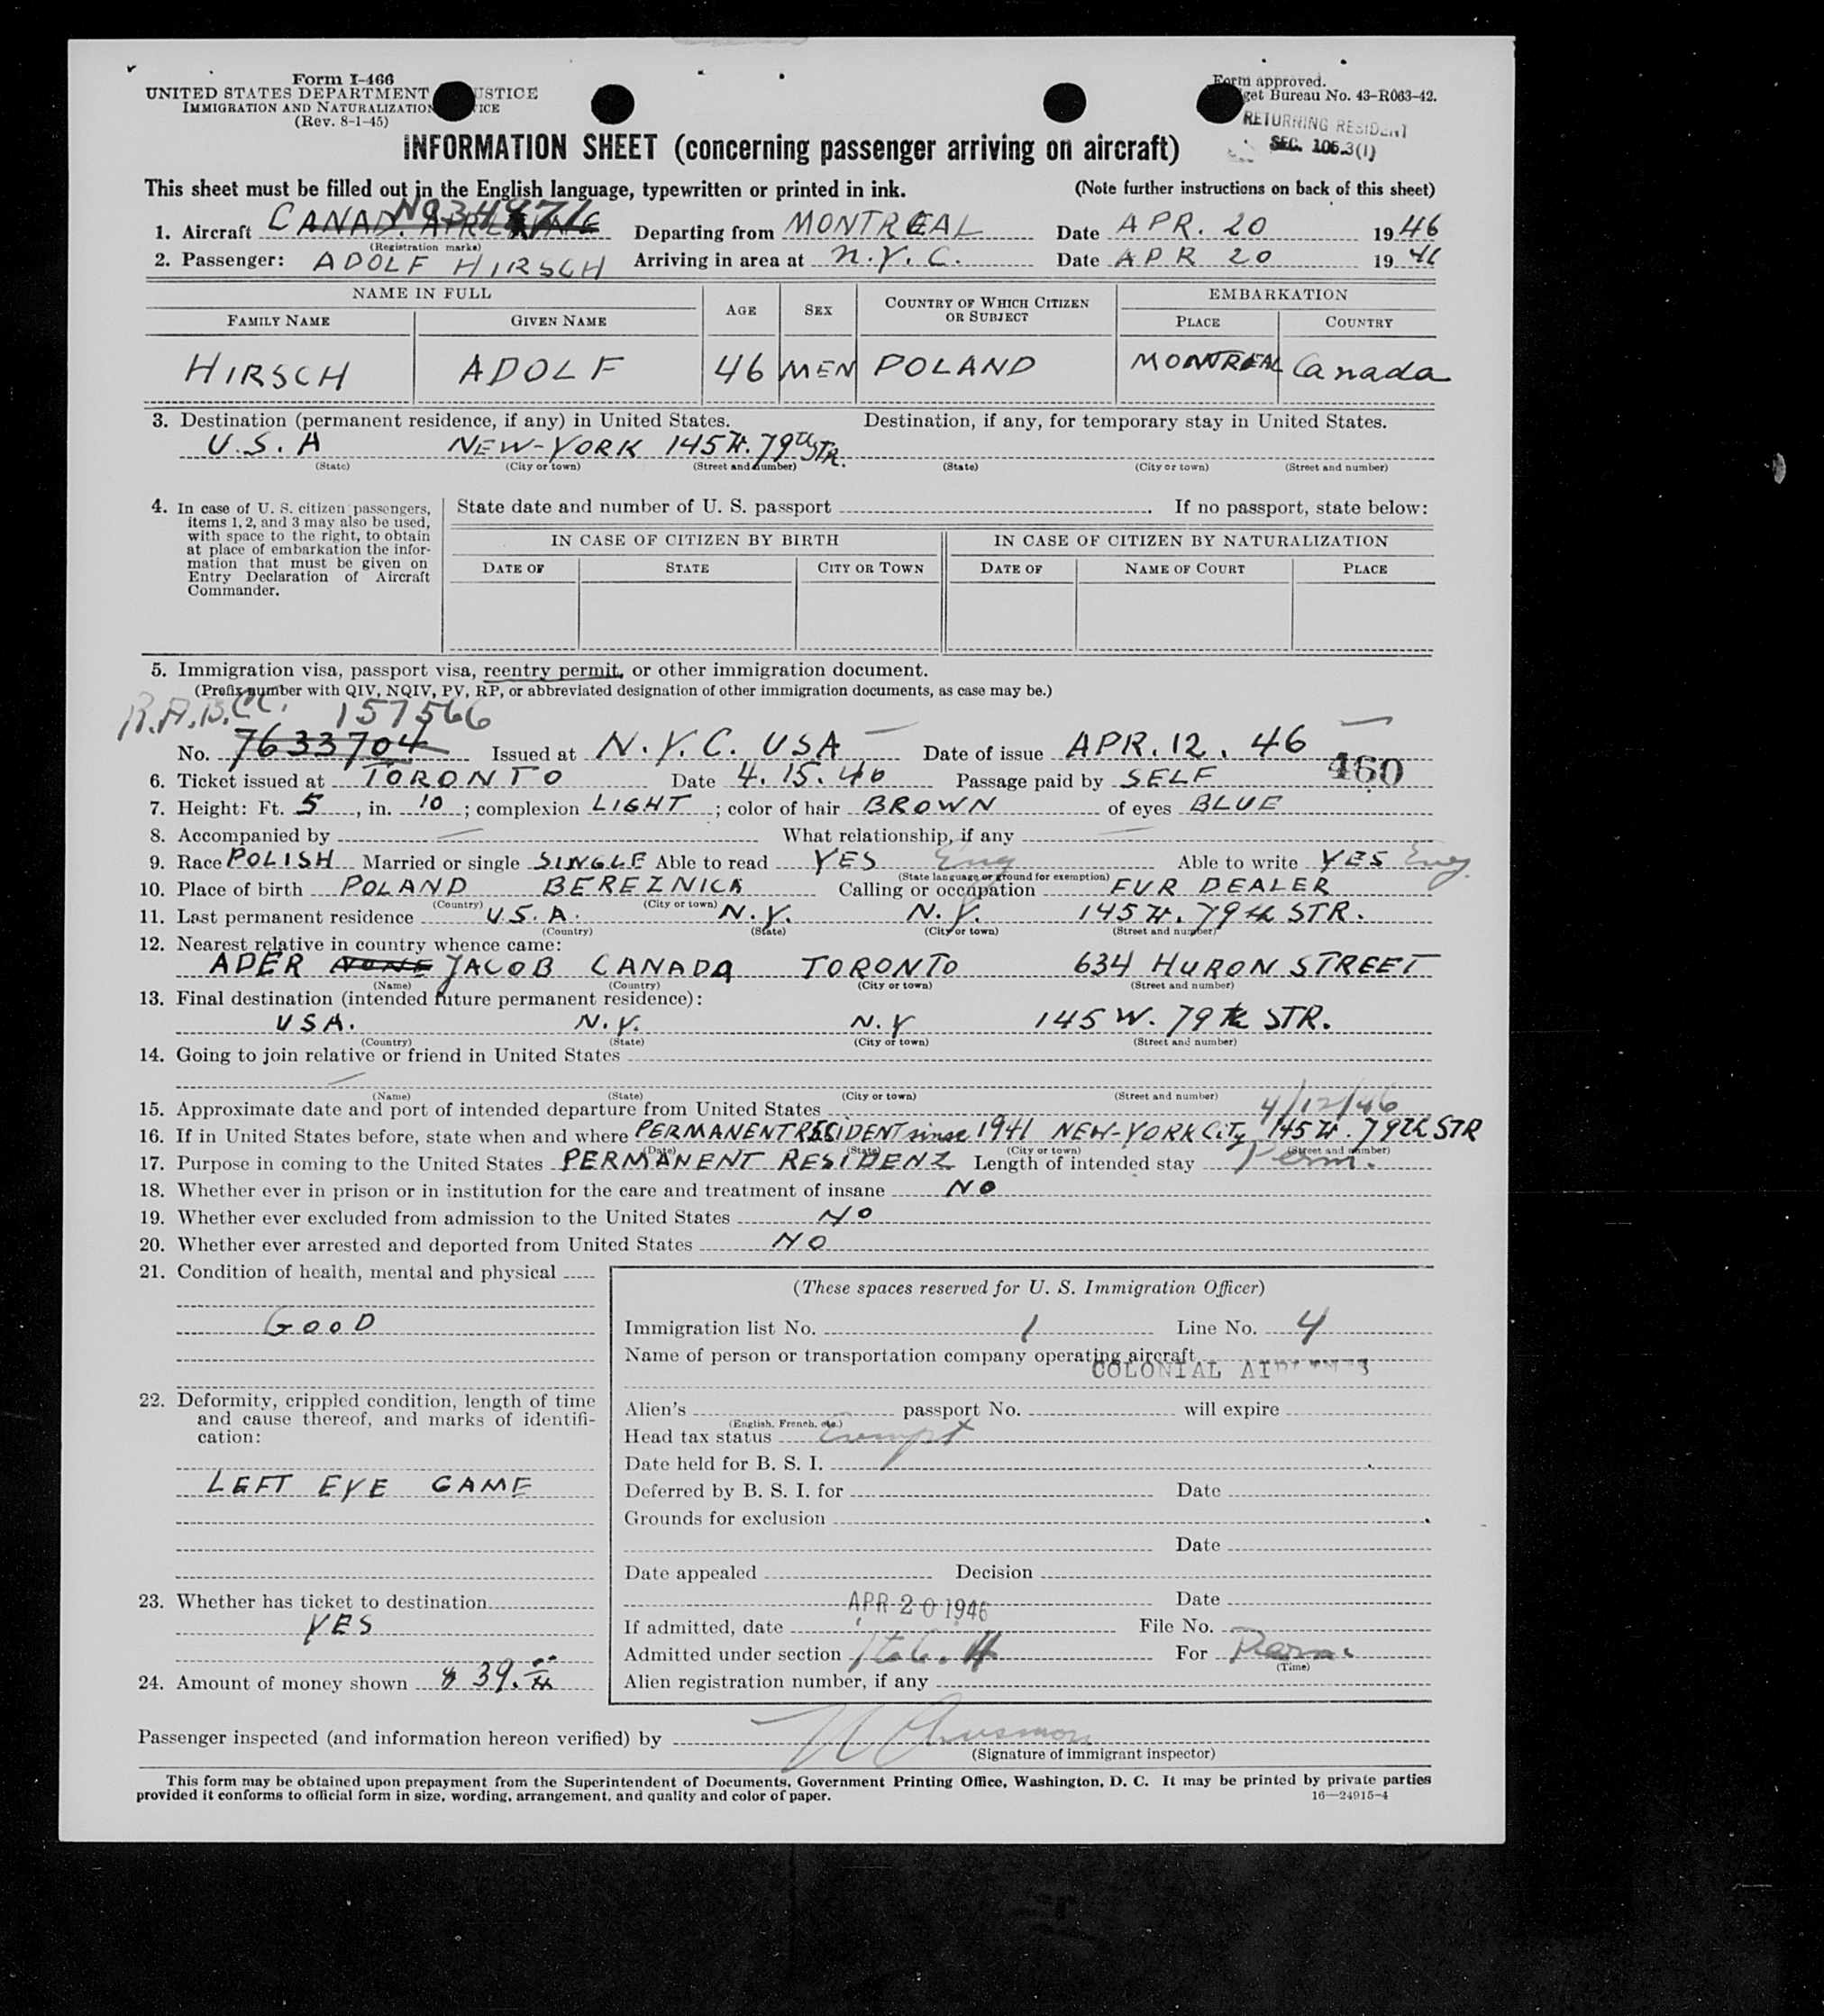 Form I-466
UNITED STATES DEPARTMENT USTICE
IMMIGRATION AND NATURALIZATION ICE
(Rev. 8-1-45)
Form approved.
get Bureau No. 43-R063-42.
RETURNING RESIDENT
SEC. 106.3(1)
INFORMATION SHEET (concerning passenger arriving on aircraft)
This sheet must be filled out in the English language, typewritten or printed in ink. (Note further instructions on back of this sheet)
1. Aircraft CANAD. Departing from MONTREAL Date APR. 20 1946
(Registration marks)
2. Passenger: ADOLF HIRSCH Arriving in area at N.Y.C. Date APR 20 1946
NAME IN FULL AGE SEX COUNTRY OF WHICH CITIZEN OR SUBJECT EMBARKATION
FAMILY NAME GIVEN NAME PLACE COUNTRY
HIRSCH ADOLF 46 MEN POLAND MONTREAL Canada
3. Destination (permanent residence, if any) in United States. Destination, if any, for temporary stay in United States.
U.S.A NEW-YORK 145 W. 79th STR.
(State) (City or town) (Street and number) (State) (City or town) (Street and number)
4. In case of U. S. citizen passengers, items 1, 2, and 3 may also be used, with space to the right, to obtain at place of embarkation the information that must be given on Entry Declaration of Aircraft Commander.
State date and number of U. S. passport . If no passport, state below:
IN CASE OF CITIZEN BY BIRTH IN CASE OF CITIZEN BY NATURALIZATION
DATE OF STATE CITY OR TOWN DATE OF NAME OF COURT PLACE
5. Immigration visa, passport visa, reentry permit, or other immigration document.
(Prefix number with QIV, NQIV, PV, RP, or abbreviated designation of other immigration documents, as case may be.)
R.A.B.C.C. 157566
No. 7633704 Issued at N.Y.C. USA Date of issue APR. 12. 46
460
6. Ticket issued at TORONTO Date 4.15.46 Passage paid by SELF
7. Height: Ft. 5, in. 10; complexion LIGHT; color of hair BROWN of eyes BLUE
8. Accompanied by What relationship, if any
9. Race POLISH Married or single SINGLE Able to read YES Eng Able to write YES Eng
(State language or ground for exemption)
10. Place of birth POLAND BEREZNICA Calling or occupation FUR DEALER
(Country) (City or town)
11. Last permanent residence U.S.A. N.Y. N.Y. 145 W. 79th STR.
(Country) (State) (City or town) (Street and number)
12. Nearest relative in country whence came:
ADER NONE JACOB CANADA TORONTO 634 HURON STREET
(Name) (Country) (City or town) (Street and number)
13. Final destination (intended future permanent residence):
USA. N.Y. N.Y 145 W. 79th STR.
(Country) (State) (City or town) (Street and number)
14. Going to join relative or friend in United States
(Name) (State) (City or town) (Street and number)
15. Approximate date and port of intended departure from United States 4/12/46
16. If in United States before, state when and where PERMANENT RESIDENT since 1941 NEW-YORK CITY 145 W. 79th STR
(Date) (State) (City or town) (Street and number)
17. Purpose in coming to the United States PERMANENT RESIDENZ Length of intended stay Perm.
18. Whether ever in prison or in institution for the care and treatment of insane NO
19. Whether ever excluded from admission to the United States NO
20. Whether ever arrested and deported from United States NO
21. Condition of health, mental and physical
GOOD
22. Deformity, crippled condition, length of time and cause thereof, and marks of identification:
LEFT EYE GAME
23. Whether has ticket to destination
YES
24. Amount of money shown $ 39.
(These spaces reserved for U. S. Immigration Officer)
Immigration list No. 1 Line No. 4
Name of person or transportation company operating aircraft
COLONIAL AIRLINES
Alien's passport No. will expire
(English, French, etc.)
Head tax status Exempt
Date held for B. S. I.
Deferred by B. S. I. for Date
Grounds for exclusion
Date
Date appealed Decision
APR 20 1946 Date
If admitted, date File No.
Admitted under section For Perm.
(Time)
Alien registration number, if any
Passenger inspected (and information hereon verified) by
(Signature of immigrant inspector)
This form may be obtained upon prepayment from the Superintendent of Documents, Government Printing Office, Washington, D. C. It may be printed by private parties
provided it conforms to official form in size, wording, arrangement, and quality and color of paper. 16—24915-4